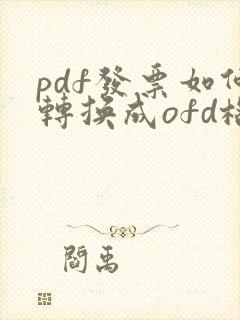 pdf發票如何
轉換成ofd格
閻禹